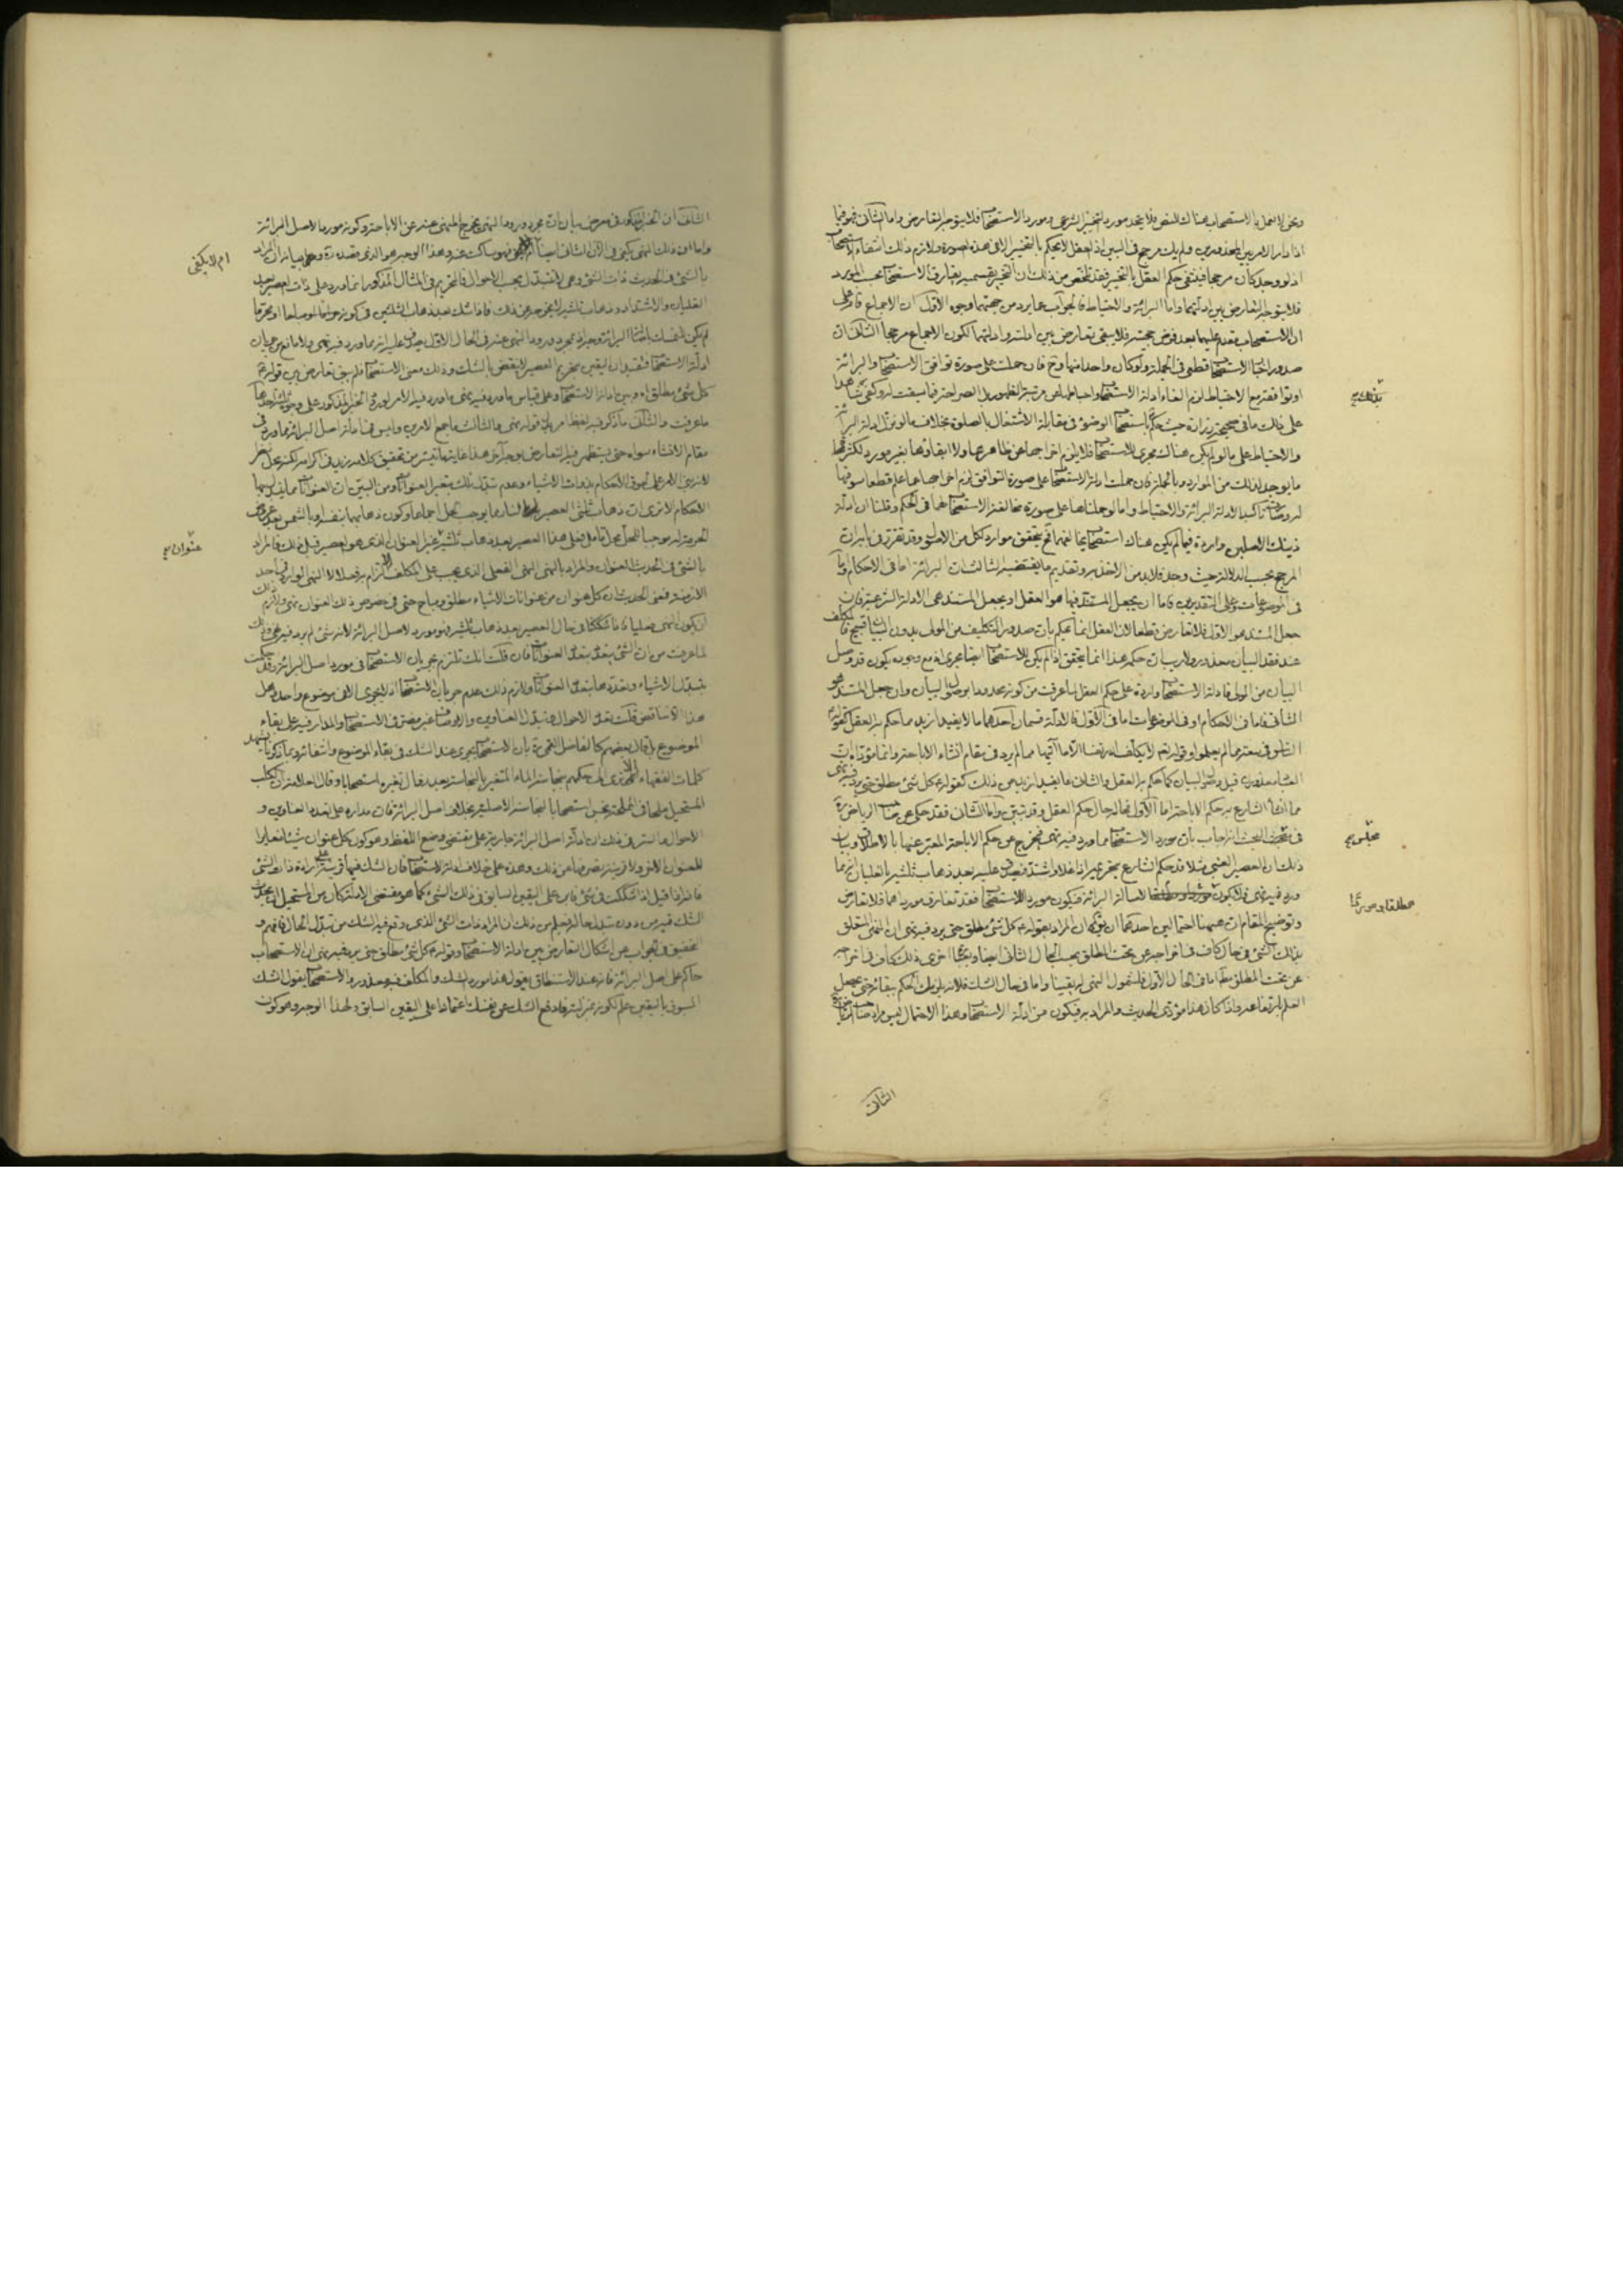 ونحن لا نعمل بالاستصحاب هناك للنص فلا يتحد مورد التخيير الشرعي ومورد الاستصحاب فلا يتوجه التعارض واما الثاني فهو فيما
اذا دار الامر بين المحذورين فلم يك مرجح في البين اذ العقل لا يحكم بالتخيير الا في هذه الصورة ولازم ذلك انتفاء الاستصحاب
اذ لو وجد كان مرجحا فينتفي حكم العقل بالتخيير فقد تلخص من ذلك ان التخيير بقسميه يفارق الاستصحاب بحسب المورد
فلا يتوجه التعارض بين ادلتهما واما البرائة والاحتياط فالجواب عما يرد من جهتهما وجوه الاول ان الاجماع قام على
ان الاستصحاب يقدم عليهما بعد فرض حجيته فلا يبقى تعارض بين ادلته وادلتهما لكون الاجماع مرجحا الثاني ان
صدور اخبار الاستصحاب قطعي في الجملة ولو كان واحدا منها وح فان حملت على صورة توافق الاستصحاب والبرائة
او توافقه مع الاحتياط لزم الغاء ادلة الاستصحاب
على ذلك ما في صحيحة زرارة حيث حكم باستصحاب الوضوء في مقابلة الاشتغال بالصلوة بخلاف ما لو نزل ادلة البرائة
والاحتياط على ما لو لم يكن هناك مجرى للاستصحاب فلا يلزم اخراجهما عن ظاهرهما ولا ابقاؤهما بغير مورد لكثرة
ما يوجد لذلك من الموارد وبالجملة فان حملت ادلة الاستصحاب على صورة التوافق لزم اخراجها عما علم قطعا
تاكيدا لادلة البرائة والاحتياط واما لو حملناها على صورة مخالفة الاستصحاب لهما في الحكم وقلنا ان ادلة
ذينك الاصلين واردة فيما لم يكن هناك استصحاب يخالفهما فح يتحقق موارد لكل من الادلة وقد تقرر في باب ان
المرجح بحسب الدلالة حيث وجد فلا بد من الاخذ به وتقديم ما يقتضيه الثالث ان البرائة اما في الاحكام او
في الموضوعات وعلى التقديرين فاما ان يجعل المستند فيها هو العقل او يجعل المستند هي الادلة الشرعية فان
جعل المستند هو الاول فلا تعارض قطعا لان العقل انما يحكم بان صدور التكليف من المولى بدون البيان قبيح فالمكلف
عند فقد البيان معذور ولا ريب ان حكمه هذا انما يتحقق اذا لم يكن للاستصحاب ايضا مجرى اذ مع وجوده يكون قد وصل
البيان من المولى فادلة الاستصحاب واردة على حكم العقل لما عرفت من كونه محدودا بوصول البيان وان جعل المستند هو
الثاني فاما في الاحكام او في الموضوعات اما في الاول فالادلة قسمان احدهما ما لا يفيد ازيد مما حكم به العقل كقوله
الناس في سعة مما لم يعلموا وقوله تعالى لا يكلف الله نفسا الا ما آتيها مما لم يرد في مقام انشاء الاباحة وانما مؤداه ان
العباد معذورون قبل وصول البيان كما حكم به العقل والثاني ما يفيد ازيد من ذلك كقوله كل شئ مطلق حتى يرد فيه نهى
مما انشأ الشارع به حكم الاباحة اما الاول فحاله حال حكم العقل وقد تبين واما الثاني فقد حكى عن صاحب الرياض ره
في مجلس البحث انه اجاب بان مورد الاستصحاب مما ورد فيه نهى فيخرج عن حكم الاباحة المعبر عنها بالاطلاق وبيان
ذلك ان العصير العنبي مثلا قد حكم الشارع بتحريمه اذا غلا واشتد فيصدق عليه بعد ذهاب ثلثيه بالغليان انه مما
ورد فيه نهى فلا يكون لاصالة البرائة فيكون موردا للاستصحاب فقد تفارق موردهما فلا تعارض
وتوضيح المقام ان ههنا احتمالين احدهما ان يكون المراد بقوله كل شئ مطلق حتى يرد فيه نهى ان النهى المتعلق
بذلك الشئ في حال كاف في اخراجه عن تحت المطلق بحسب الحال الثاني ايضا وبعبارة اخرى ذلك كاف في اخراجه
عن تحت المطلق مطلقا اما في الحال الاول فلشمول النهى له يقينا واما في حال الشك فلانه يلزمك الحكم ببقائه حتى يحصل
العلم بارتفاعه واذا كان هذا مؤدى الحديث والمراد به فيكون من ادلة الاستصحاب وهذا الاحتمال ليس مراد صاحب الرياض
الثاني
مجلس صح
مطلقا و مورد
الثاني ان الخبر المذكور في معرض بيان ان مجرد ورود النهى يخرج المنهى عنه عن الاباحة وكونه موردا لاصل البرائة
واما ان ذلك النهى يكفي في الآن الثاني ايضا ام لا يكفي فهو ساكت عنه وهذا الوجه هو الذي قصده ره وبيانه ان المراد
بالشئ في الحديث ذات الشئ وهي لا تتبدل بحسب الاحوال فالتحريم في المثال المذكور انما ورد على ذات العصير بعد
الغليان والاشتداد وذهاب ثلثيه لا يخرجه عن ذلك فاذا شك بعد ذهاب الثلثين في كونه حراما او مباحا
لم يكن التمسك باصالة البرائة وجها اذ بمجرد ورود النهى عنه في الحال الاول يصدق عليه انه مما ورد فيه نهى ولا مانع من جريان
ادلة الاستصحاب فيفيد ان اليقين بتحريم العصير لا ينقض بالشك وذلك معنى الاستصحاب فلم يبق تعارض بين قوله
كل شئ مطلق اه وبين ادلة الاستصحاب وعلى قياس ما ورد فيه نهى ما ورد فيه الامر لورود الخبر المذكور على وجوه ثلثة احدها
ما عرفت والثاني ما ذكر فيه لفظ امر بدل قوله نهى والثالث ما جمع الامرين وليس في ادلة اصل البرائة مما ورد في
مقام الانشاء سواه حتى يستظهر فيه التعارض بوجه آخر هذا غاية ما تيسر من تحقيق كلامه زيد في اكرامه لكنه محل نظر
لابتناء الامر على لحوق الاحكام بذوات الاشياء وعدم تبدل ذلك بتغير العنوانات ومن البين ان العنوانات مما يتبدل بها
الاحكام الا ترى ان ذهاب ثلثى العصير بالنار مما يوجب الحل اجماعا وكون ذهابهما بنفسه او بالشمس بعد عروض
الحرمة له موجبا للحل محل تأمل فعلى هذا العصير بعد ذهاب ثلثيه غير العنوان الذي هو العصير قبل ذلك فالمراد
بالشئ في الحديث العنوان والمراد بالنهى النهى الفعلي الذي يجب على المكلف الالتزام به فعلا لا النهى الوارد في احد
الازمنة فمعنى الحديث ان كل عنوان من عنوانات الاشياء مطلق ومباح حتى يرد في خصوص ذلك العنوان نهى ولازم ذلك
ان يكون النهى فعليا فاذا شككنا في حال العصير بعد ذهاب ثلثيه فهو مورد لاصل البرائة لانه شئ لم يرد فيه نهى وذلك
لما عرفت من ان الشئ يتعدد بتعدد العنوانات فان قلت انك تلتزم بجريان الاستصحاب في مورد اصل البرائة وقد حكمت
بتبدل الاشياء وتعددها بتعدد العنوانات ولازم ذلك عدم جريان الاستصحاب اذ لا يجرى الا في موضوع واحد وهل
هذا الا تناقض قلت تعدد الاحوال وتبدل العناوين والاوصاف غير مضر في الاستصحاب والمدار فيه على بقاء
الموضوع بل قال بعضهم كالفاضل القمي ره بان الاستصحاب يجرى عند الشك في بقاء الموضوع وانتفائه وبما ذكرنا يشهد
كلمات الفقهاء الا ترى الى حكمهم بنجاسة الماء المتغير بالنجاسة بعد زوال تغيره استصحابا وقال العلامة ان الكلب
المستحيل ملحا في المملحة نجس استصحابا لنجاسته الاصلية بخلاف اصل البرائة فان مداره على تعدد العناوين و
الاحوال والسر في ذلك ان ادلة اصل البرائة جارية على مقتضى وضع اللفظ وهو كون كل عنوان شيئا مغايرا
للعنوان الآخر ولا قرينة تصرفها عن ذلك وهذه على خلاف ادلة الاستصحاب فان الشك فيها قرينة على ارادة ذات الشئ
فانه اذا قيل اذا شككت في شئ فابن على اليقين السابق في ذلك الشئ كما هو مقتضى الادلة كان من المستحيل ان يحدث
الشك فيه من دون تبدل حاله فيعلم من ذلك ان المراد ذات الشئ الذي وقع فيه الشك من تبدل الحال فافهم و
التحقيق في الجواب عن اشكال التعارض بين ادلة الاستصحاب وقوله كل شئ مطلق حتى يرد فيه نهى ان الاستصحاب
حاكم على اصل البرائة فانه عند الاستنطاق يقول هذا مورد الشك والمكلف فيه معذور والاستصحاب يقول الشك
المسبوق باليقين علم لكونه بمنزلته فادفع الشك عن نفسك اعتمادا على اليقين السابق ولهذا الوجه وهو كون
ام لا يكفي
عنوان صح